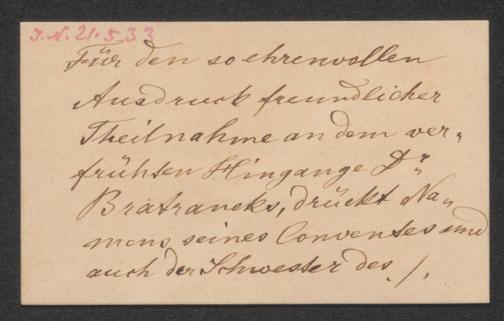 I. N. 21.533
Für den so ehrenvollen
Ausdruck freundlicher
Theilnahme an dem ver„
frühten Hingange Dr
Bratraneks, drückt Na„
mens seines Conventes und
auch der Schwester des ./.